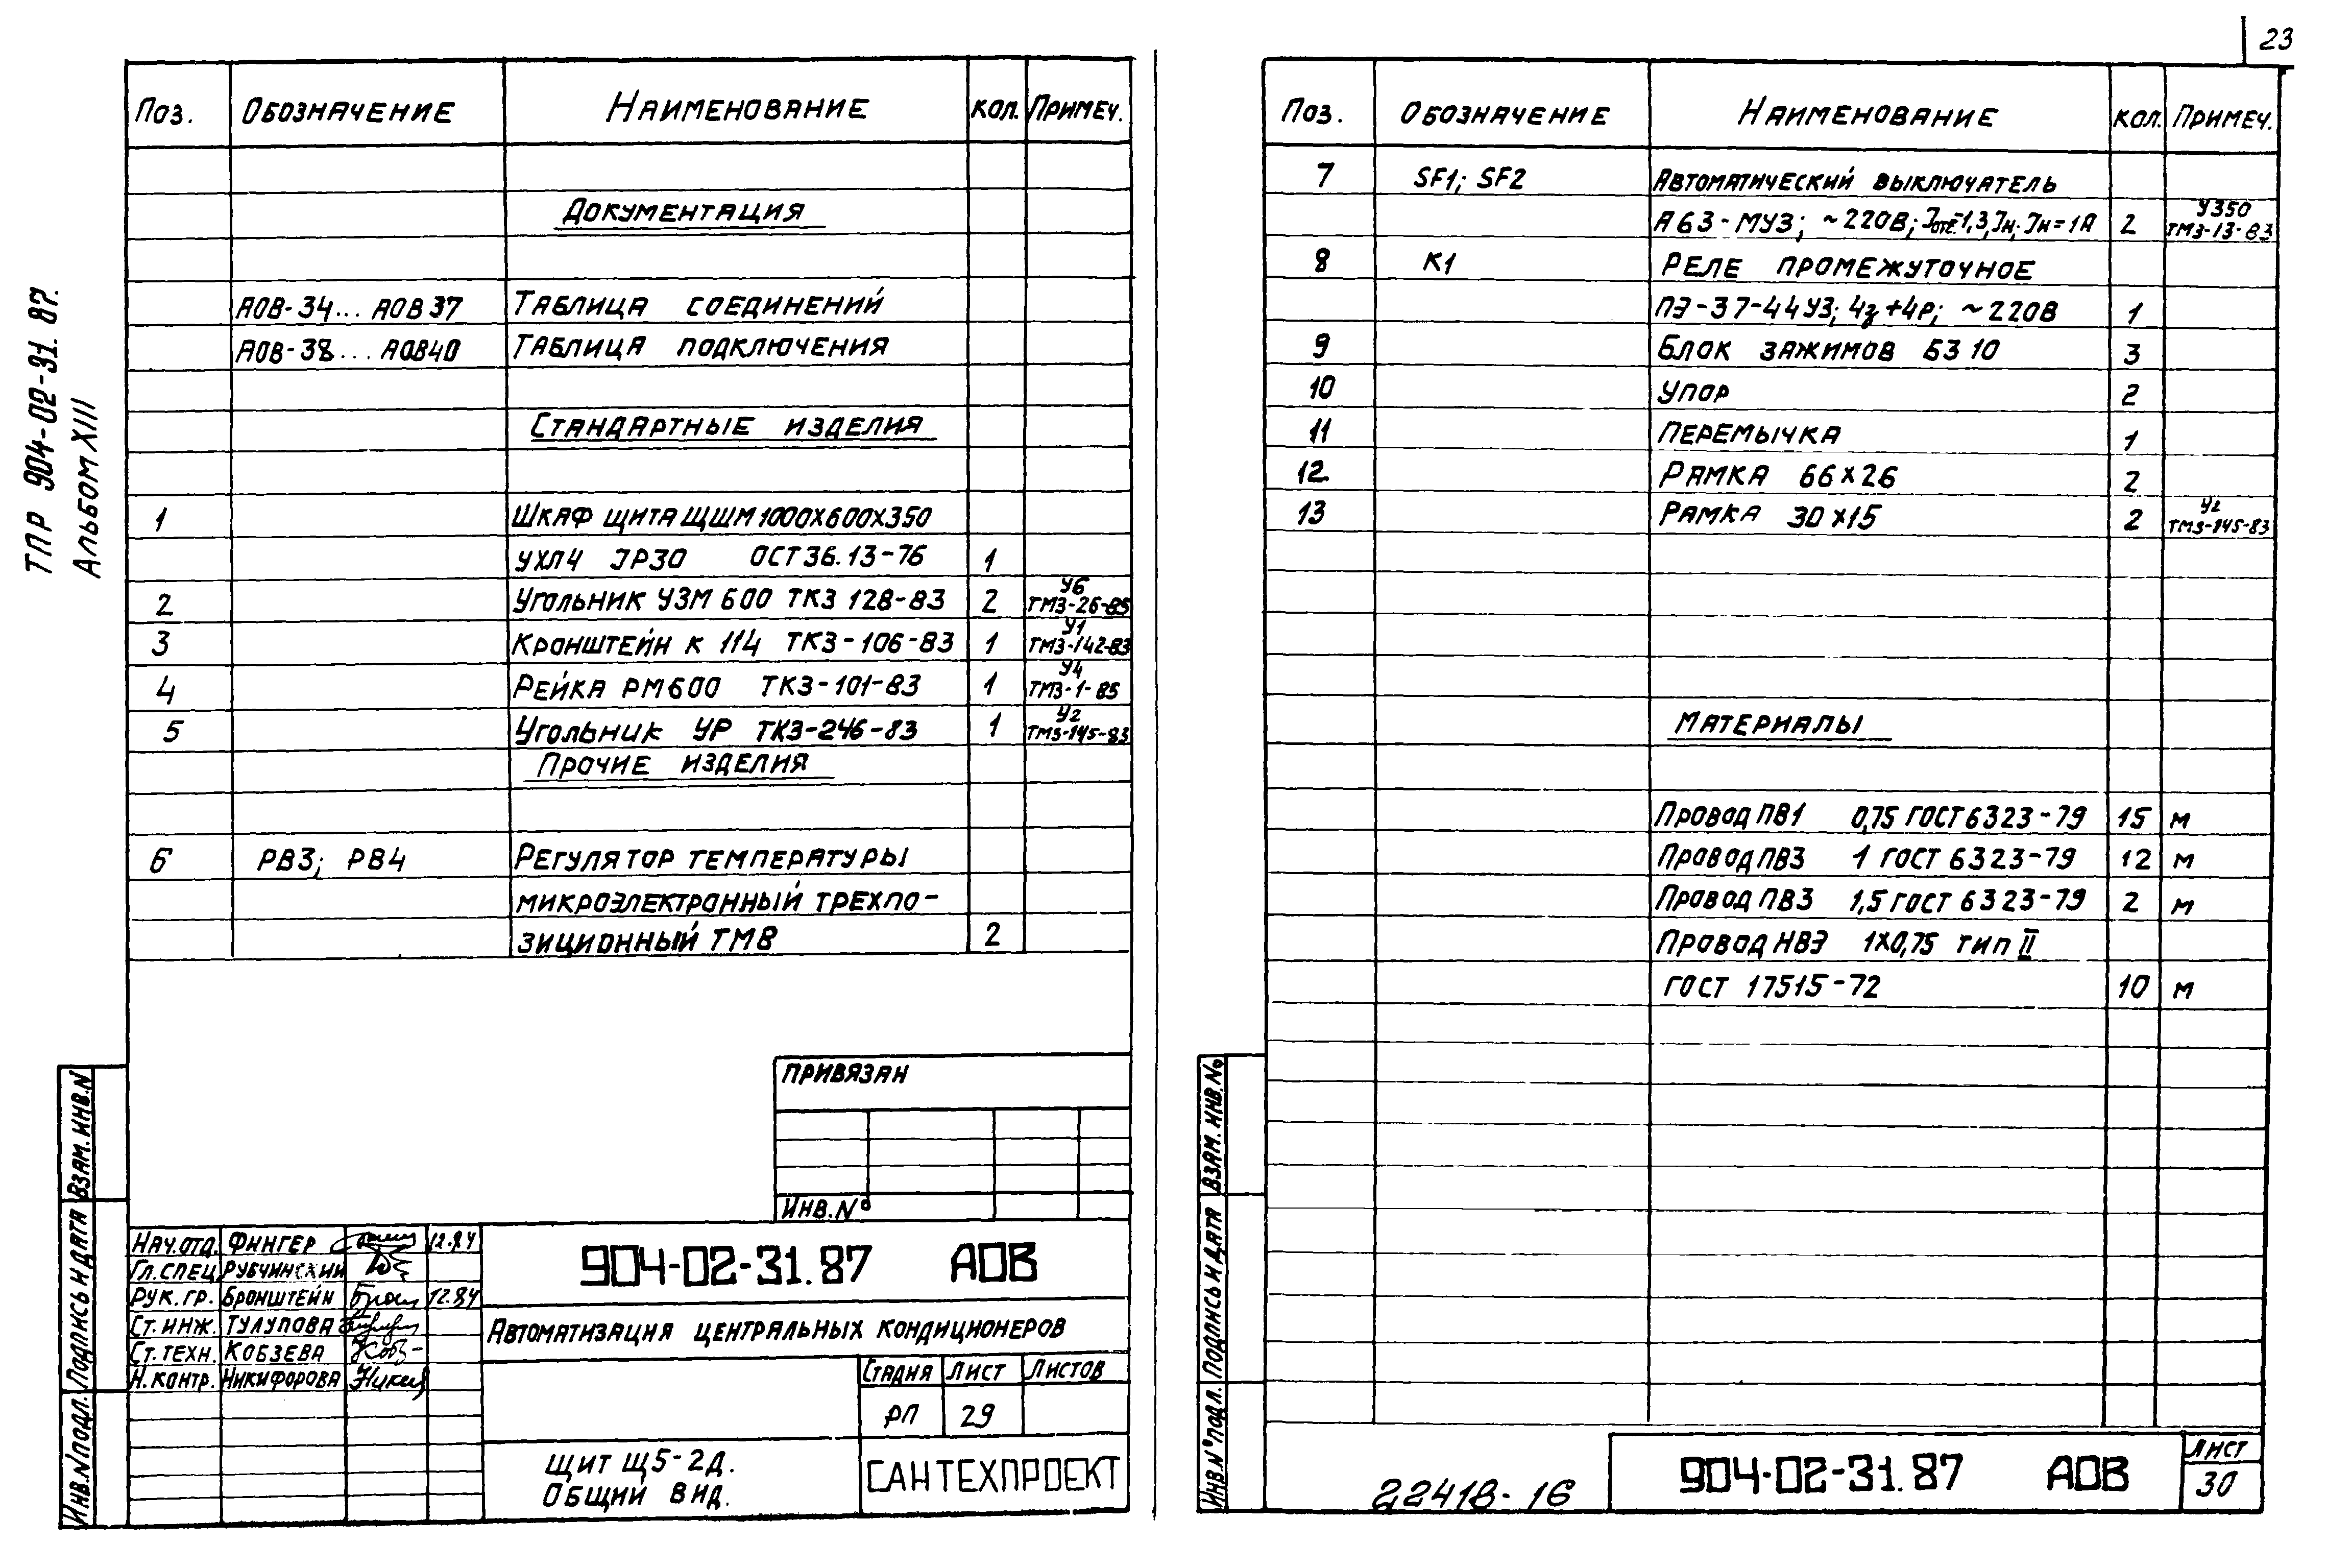 23
ТПР 904-02-31.87.
Альбом XIII
Поз. Обозначение Наименование Кол. Примеч.
Документация
АОВ-34... АОВ37 Таблица соединений
АОВ-38... АОВ40 Таблица подключения
Стандартные изделия
1 Шкаф щита ЩШМ 1000х600х350
УХЛ4 IP30 ОСТ36.13-76 1
2 Угольник УЗМ 600 ТКЗ 128-83 2 У6 ТМ3-26-85
3 Кронштейн К 114 ТКЗ-106-83 1 У1 ТМ3-142-83
4 Рейка РМ600 ТКЗ-101-83 1 У4 ТМ3-1-85
5 Угольник УР ТКЗ-246-83 1 У2 ТМ3-145-83
Прочие изделия
6 РВ3; РВ4 Регулятор температуры
микроэлектронный трехпо-
зиционный ТМ8 2
Привязан
Инв.N°
Нач.отд. Фингер 12.84
Гл.спец Рубчинский
Рук.гр. Бронштейн 12.84
Ст.инж. Тулупова
Ст.техн. Кобзева
Н.контр. Никифорова
904-02-31.87 АОВ
Автоматизация центральных кондиционеров
Стадия Лист Листов
РП 29
Щит Щ5-2Д.
Общий вид.
САНТЕХПРОЕКТ
Инв.N подл. Подпись и дата Взам.инв.N
Поз. Обозначение Наименование Кол. Примеч.
7 SF1; SF2 Автоматический выключатель
А63-МУ3; ~220В; Iотс=1,3 Iн; Iн=1А 2 У350 ТМ3-13-83
8 К1 Реле промежуточное
ПЭ-37-44У3; 4з+4р; ~220В 1
9 Блок зажимов БЗ 10 3
10 Упор 2
11 Перемычка 1
12 Рамка 66х26 2
13 Рамка 30х15 2 У2 ТМ3-145-83
Материалы
Провод ПВ1 0,75 ГОСТ 6323-79 15 м
Провод ПВ3 1 ГОСТ 6323-79 12 м
Провод ПВ3 1,5 ГОСТ 6323-79 2 м
Провод НВЭ 1х0,75 тип II
ГОСТ 17515-72 10 м
Инв.N° подл. Подпись и дата Взам.инв.No
22418-16
904-02-31.87 АОВ
Лист
30